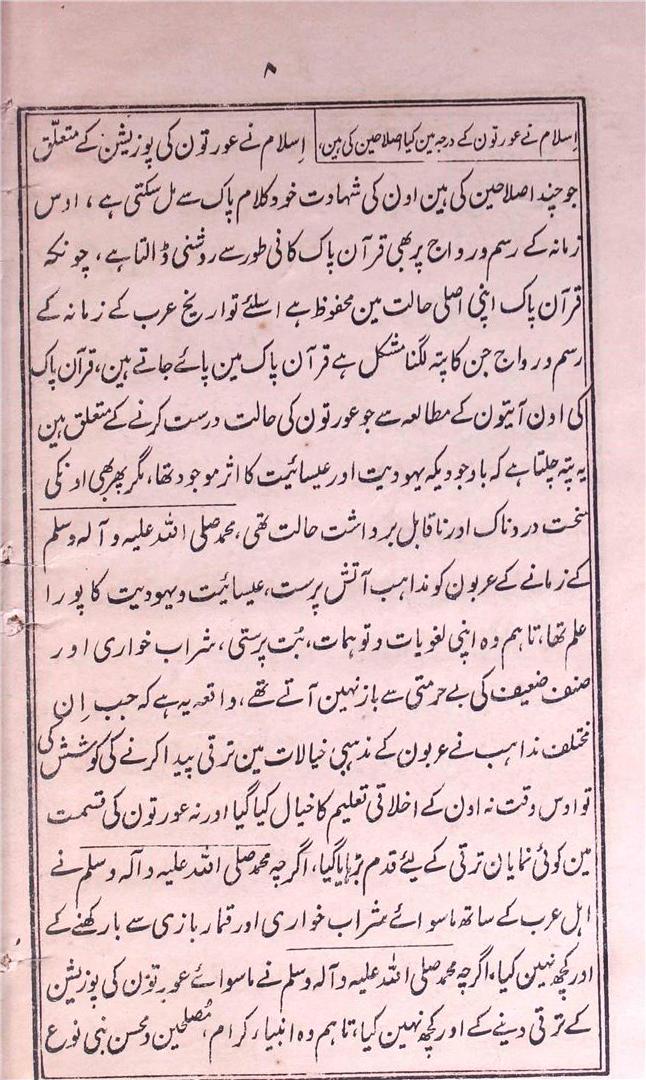 ۸
اسلام نے عورتون کے درجہ مین کیا اصلاحین کی ہین، اسلام نے عورتون کی پوزیشن کے متعلّق
جو چند اصلاحین کی ہین اون کی شہادت خود کلام پاک سے مل سکتی ہے، اوس
زمانہ کے رسم و رواج پر بھی قرآن پاک کافی طور سے روشنی ڈالتا ہے، چونکہ
قرآن پاک اپنی اصلی حالت مین محفوظ ہے اسلئے تواریخ عرب کے زمانہ کے
رسم و رواج جن کا پتہ لگنا مشکل ہے قرآن پاک مین پائے جاتے ہین، قرآن پاک
کی اون آیتون کے مطالعہ سے جو عورتون کی حالت درست کرنے کے متعلق ہین
یہ پتہ چلتا ہے کہ باوجودیکہ یہودیت اور عیسائیت کا اثر موجود تھا، مگر پھر بھی اونکی
سخت دردناک اور ناقابل برداشت حالت تھی، محمد صلی اللہ علیہ و آلہ وسلم
کے زمانے کے عربون کو مذاہب آتش پرست، عیسائیت و یہودیت کا پورا
علم تھا، تاہم وہ اپنی لغویات و توہمات، بُت پرستی، شراب خواری اور
صنف ضعیف کی بے حرمتی سے باز نہین آتے تھے، واقعہ یہ ہے کہ جب اِن
مختلف مذاہب نے عربون کے مذہبی خیالات مین ترقی پیدا کرنے کی کوشش کی
تو اوس وقت نہ اون کے اخلاقی تعلیم کا خیال کیا گیا اور نہ عورتون کی قسمت
مین کوئی نمایان ترقی کے لیئے قدم بڑہایا گیا، اگرچہ محمد صلی اللہ علیہ و آلہ وسلم نے
اہل عرب کے ساتھ ماسوائے شراب خواری اور قمار بازی سے باز رکھنے کے
اور کچھ نہین کیا، اگرچہ محمد صلی اللہ علیہ و آلہ وسلم نے ماسوائے عورتون کی پوزیشن
کے ترقی دینے کے اور کچھ نہین کیا، تاہم وہ انبیاء کرام، مُصلحین و محسن بنی نوع